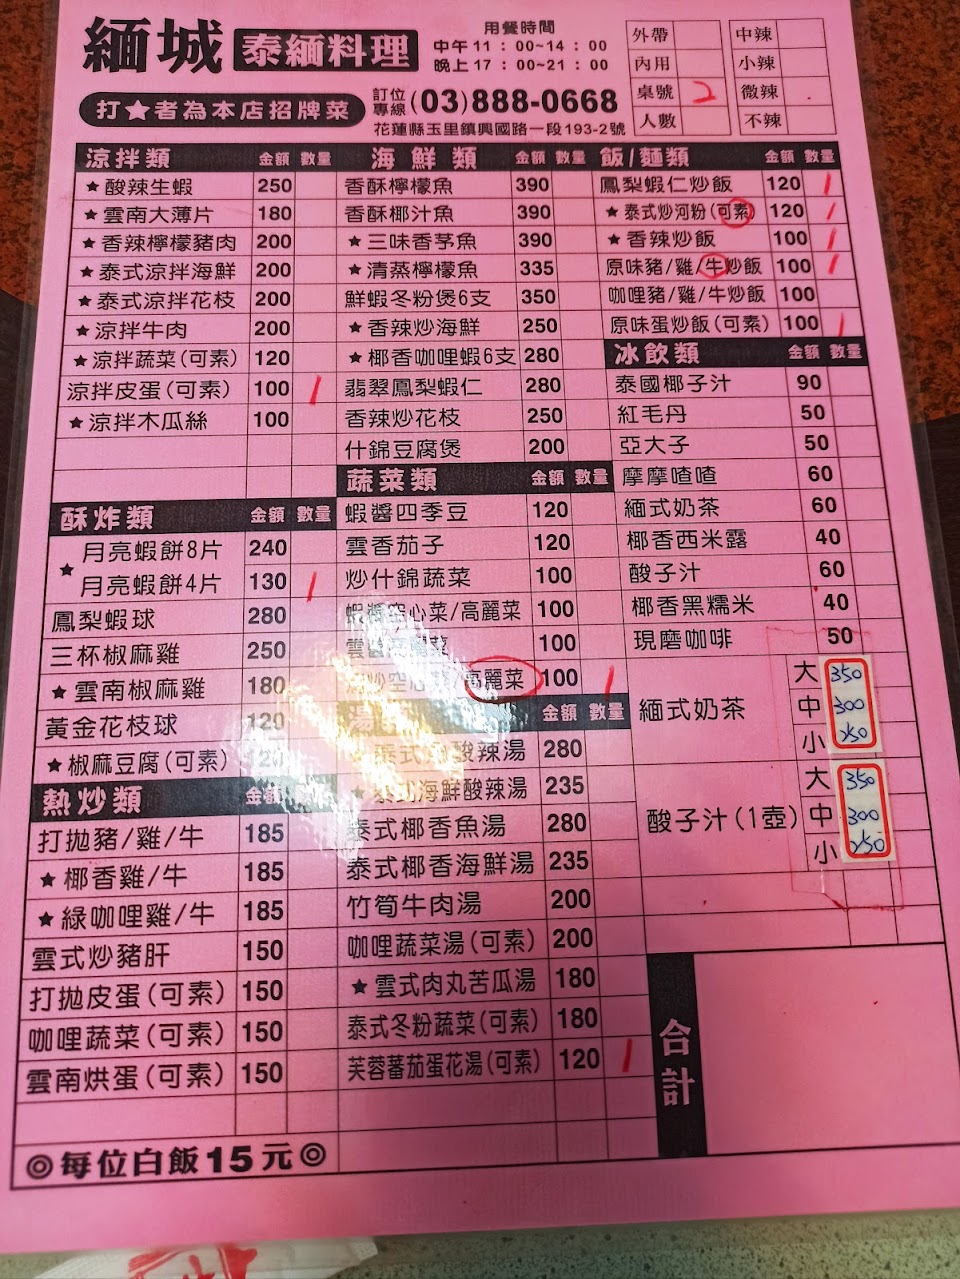 緬城 泰緬料理
用餐時間
中午11：00~14：00
晚上17：00~21：00
打★者為本店招牌菜
訂位專線(03)888-0668
花蓮縣玉里鎮興國路一段193-2號
外帶 中辣
內用 小辣
桌號 2 微辣
人數 不辣
涼拌類 金額 數量
★酸辣生蝦 250
★雲南大薄片 180
★香辣檸檬豬肉 200
★泰式涼拌海鮮 200
★泰式涼拌花枝 200
★涼拌牛肉 200
★涼拌蔬菜(可素) 120
涼拌皮蛋(可素) 100 1
★涼拌木瓜絲 100
酥炸類 金額 數量
★月亮蝦餅8片 240
月亮蝦餅4片 130 1
鳳梨蝦球 280
三杯椒麻雞 250
★雲南椒麻雞 180
黃金花枝球 120
★椒麻豆腐(可素) 120
熱炒類 金額
打拋豬/雞/牛 185
★椰香雞/牛 185
★綠咖哩雞/牛 185
雲式炒豬肝 150
打拋皮蛋(可素) 150
咖哩蔬菜(可素) 150
雲南烘蛋(可素) 150
◎每位白飯15元◎
海鮮類 金額 數量
香酥檸檬魚 390
香酥椰汁魚 390
★三味香茅魚 390
★清蒸檸檬魚 335
鮮蝦冬粉煲6支 350
★香辣炒海鮮 250
★椰香咖哩蝦6支 280
翡翠鳳梨蝦仁 280
香辣炒花枝 250
什錦豆腐煲 200
蔬菜類 金額 數量
蝦醬四季豆 120
雲香茄子 120
炒什錦蔬菜 100
蝦醬空心菜/高麗菜 100
100
炒空心菜/高麗菜 100 1
湯 金額 數量
酸辣湯 280
★泰式海鮮酸辣湯 235
泰式椰香魚湯 280
泰式椰香海鮮湯 235
竹筍牛肉湯 200
咖哩蔬菜湯(可素) 200
★雲式肉丸苦瓜湯 180
泰式冬粉蔬菜(可素) 180
芙蓉蕃茄蛋花湯(可素) 120 1
飯/麵類 金額 數量
鳳梨蝦仁炒飯 120 1
★泰式炒河粉(可素) 120 1
★香辣炒飯 100 1
原味豬/雞/牛炒飯 100 1
咖哩豬/雞/牛炒飯 100
原味蛋炒飯(可素) 100 1
冰飲類 金額 數量
泰國椰子汁 90
紅毛丹 50
亞大子 50
摩摩喳喳 60
緬式奶茶 60
椰香西米露 40
酸子汁 60
椰香黑糯米 40
現磨咖啡 50
緬式奶茶
大 350
中 300
小 250
酸子汁(1壺)
大 350
中 300
小 250
合計